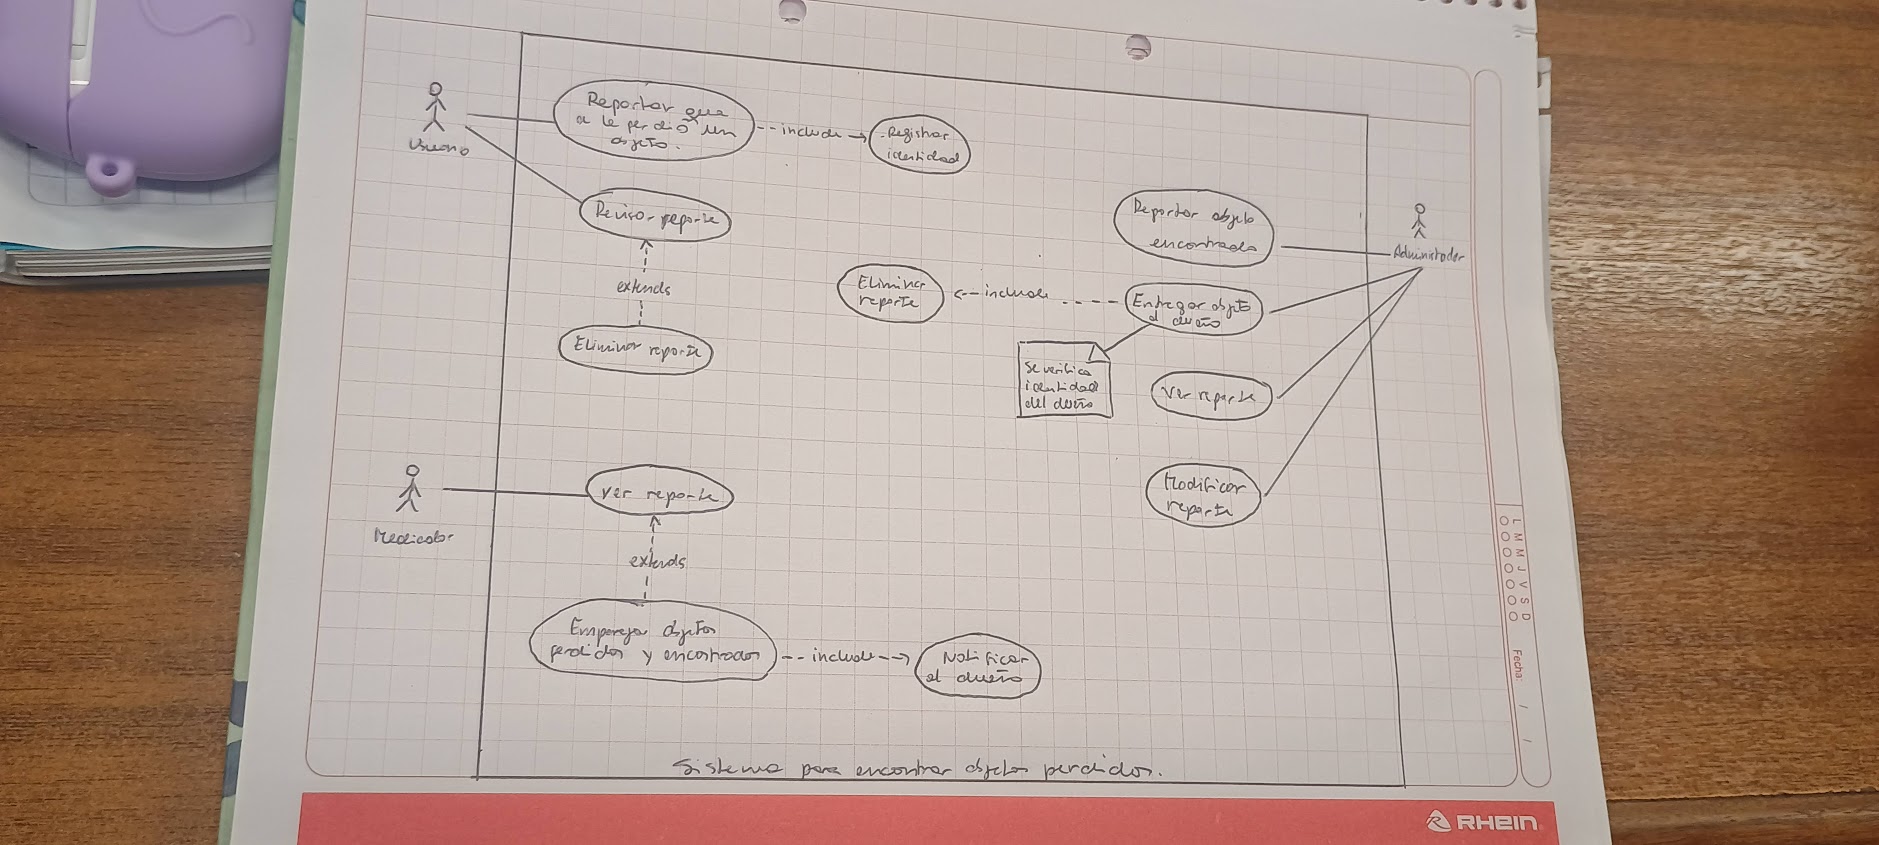 Usuario
Reportar que
a le perdio un
objeto.
-- include ->
Registrar
identidad
Revisar reporte
extends
Eliminar reporte
Reportar objeto
encontrado
Administrador
Eliminar
reporte
<-- include ----
Entregar objeto
al dueño
Se verifica
identidad
del dueño
Ver reporte
Modificar
reporte
Mediador
ver reporte
extends
Emparejar objetos
perdidos y encontrados
-- include -->
Notificar
al dueño
Sistema para encontrar objetos perdidos.
L M M J V S D
Fecha: / /
RHEIN